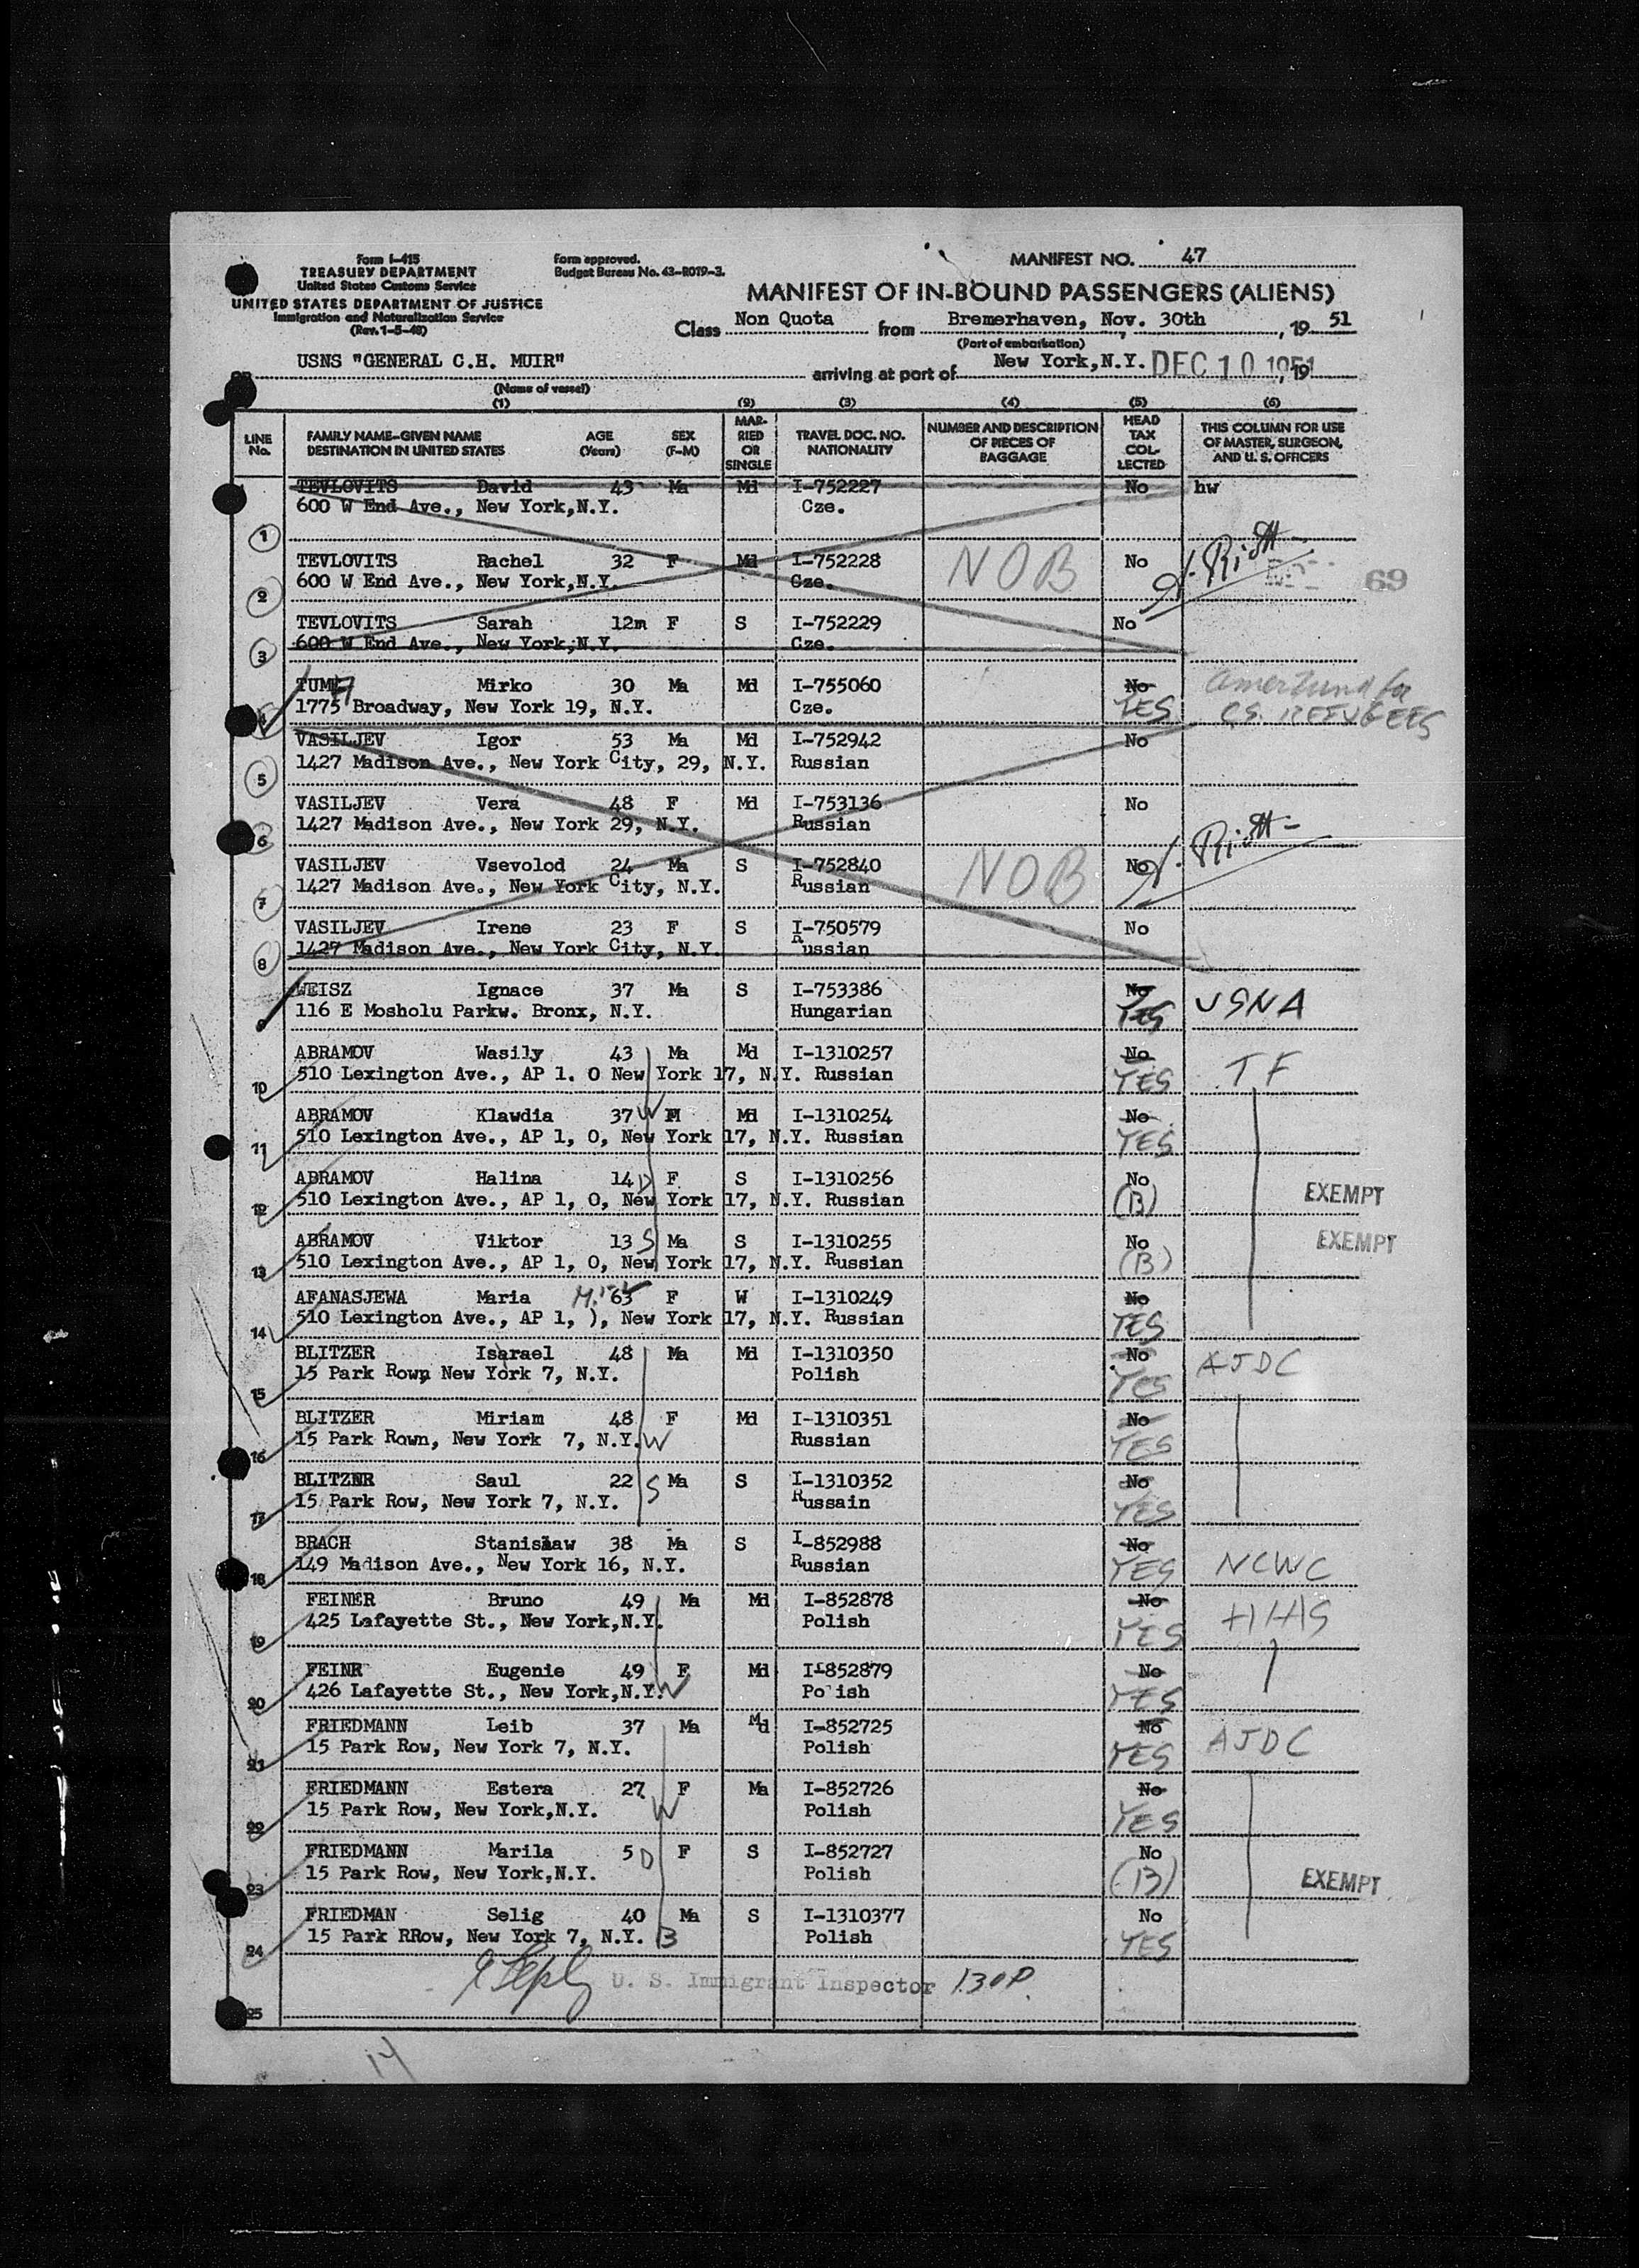 Form I-415
TREASURY DEPARTMENT
United States Customs Service
UNITED STATES DEPARTMENT OF JUSTICE
Immigration and Naturalization Service
(Rev. 1-5-48)
Form approved.
Budget Bureau No. 43-R019-3.
MANIFEST NO. 47
MANIFEST OF IN-BOUND PASSENGERS (ALIENS)
Class Non Quota from Bremerhaven, Nov. 30th, 19 51
(Port of embarkation)
USNS "GENERAL C.H. MUIR" arriving at port of New York, N.Y. DEC 10 1951, 19
(Name of vessel)
(1) (2) (3) (4) (5) (6)
LINE No. FAMILY NAME-GIVEN NAME DESTINATION IN UNITED STATES AGE (Years) SEX (F-M) MARRIED OR SINGLE TRAVEL DOC. NO. NATIONALITY NUMBER AND DESCRIPTION OF PIECES OF BAGGAGE HEAD TAX COLLECTED THIS COLUMN FOR USE OF MASTER, SURGEON, AND U. S. OFFICERS
TEVLOVITS David 43 Ma Md I-752227 No hw
600 W End Ave., New York,N.Y. Cze.
1
TEVLOVITS Rachel 32 F Md I-752228 NOB No
600 W End Ave., New York,N.Y. Cze. 69
2
TEVLOVITS Sarah 12m F S I-752229 No
600 W End Ave., New York,N.Y. Cze.
3
TUMA Mirko 30 Ma Md I-755060 No Amer Fund for
1775 Broadway, New York 19, N.Y. Cze. YES CS. REFUGEES
4
VASILJEV Igor 53 Ma Md I-752942 No
1427 Madison Ave., New York City, 29, N.Y. Russian
5
VASILJEV Vera 48 F Md I-753136 No
1427 Madison Ave., New York 29, N.Y. Russian
6
VASILJEV Vsevolod 24 Ma S I-752840 NOB No
1427 Madison Ave., New York City, N.Y. Russian
7
VASILJEV Irene 23 F S I-750579 No
1427 Madison Ave., New York City, N.Y. Russian
8
WEISZ Ignace 37 Ma S I-753386 No USNA
116 E Mosholu Parkw. Bronx, N.Y. Hungarian YES
9
ABRAMOV Wasily 43 Ma Md I-1310257 No TF
510 Lexington Ave., AP 1. O New York 17, N.Y. Russian YES
10
ABRAMOV Klawdia 37 W Md I-1310254 No
510 Lexington Ave., AP 1, 0, New York 17, N.Y. Russian YES
11
ABRAMOV Halina 14 D F S I-1310256 No
510 Lexington Ave., AP 1, 0, New York 17, N.Y. Russian (B) EXEMPT
12
ABRAMOV Viktor 13 S Ma S I-1310255 No EXEMPT
510 Lexington Ave., AP 1, 0, New York 17, N.Y. Russian (B)
13
AFANASJEWA Maria 63 F W I-1310249 No
510 Lexington Ave., AP 1, ), New York 17, N.Y. Russian YES
14
BLITZER Isarael 48 Ma Md I-1310350 No AJDC
15 Park Rown New York 7, N.Y. Polish YES
15
BLITZER Miriam 48 F Md I-1310351 No
15 Park Rown, New York 7, N.Y. W Russian YES
16
BLITZNR Saul 22 S Ma S I-1310352 No
15 Park Row, New York 7, N.Y. Russain YES
17
BRACH Stanislaw 38 Ma S I-852988 No
149 Madison Ave., New York 16, N.Y. Russian YES NCWC
18
FEINER Bruno 49 Ma Md I-852878 No HIAS
425 Lafayette St., New York,N.Y. Polish YES
19
FEINR Eugenie 49 F Md I-852879 No
426 Lafayette St., New York,N.Y. W Po ish YES
20
FRIEDMANN Leib 37 Ma Md I-852725 No AJDC
15 Park Row, New York 7, N.Y. Polish YES
21
FRIEDMANN Estera 27 F Ma I-852726 No
15 Park Row, New York,N.Y. W Polish YES
22
FRIEDMANN Marila 5 D F S I-852727 No
15 Park Row, New York,N.Y. Polish (B) EXEMPT
23
FRIEDMAN Selig 40 Ma S I-1310377 No
15 Park RRow, New York 7, N.Y. B Polish YES
24
U. S. Immigrant Inspector 130P.
25
14